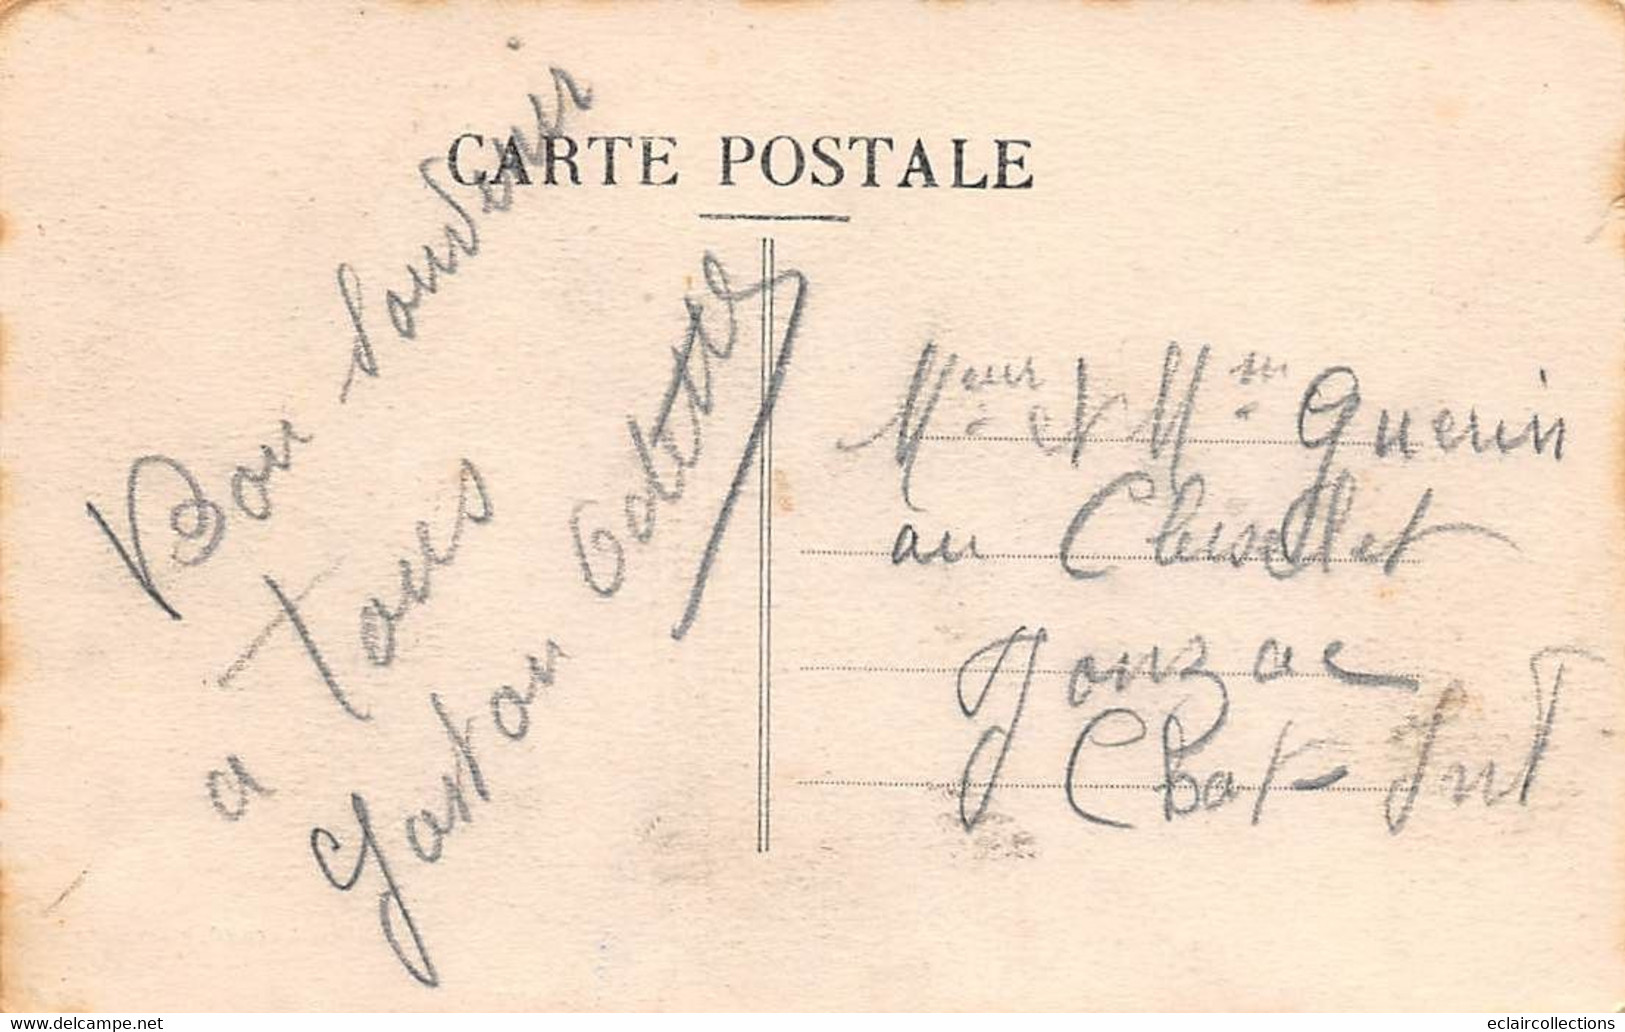 CARTE POSTALE
Bon Souvenir
a Tous
Gaston Odette
Meur et Mme Guerin
au
Jonzac
Chat Inf
www.delcampe.net
eclaircollections